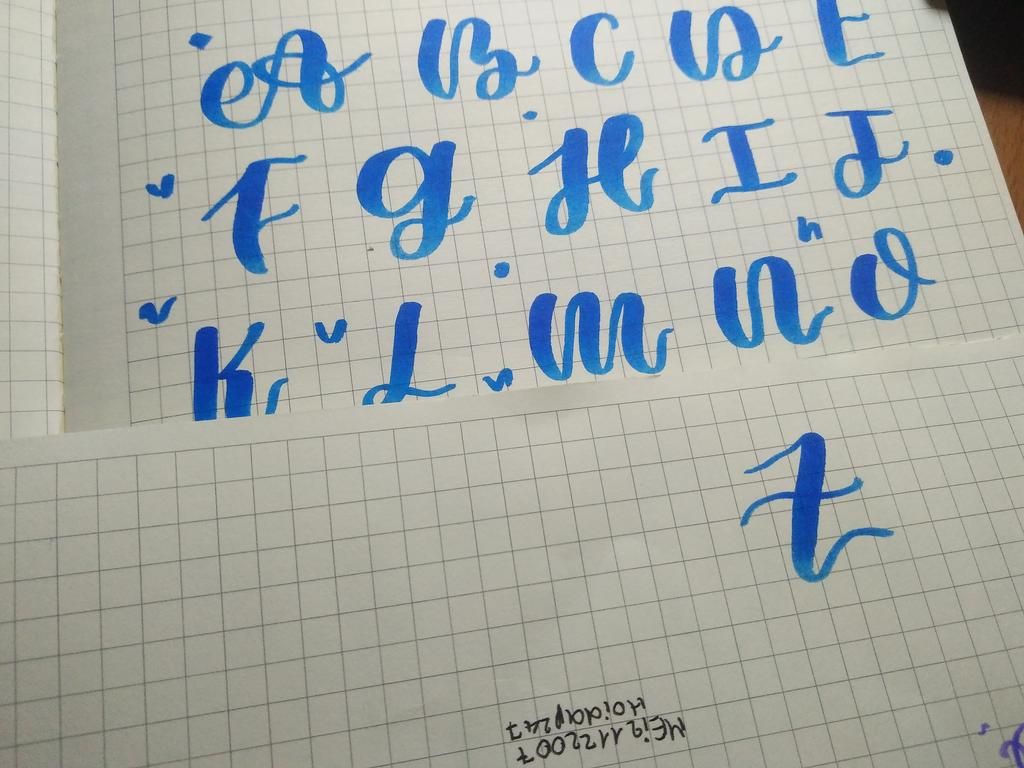 A B C D E
F G H I J
K L M N O
t